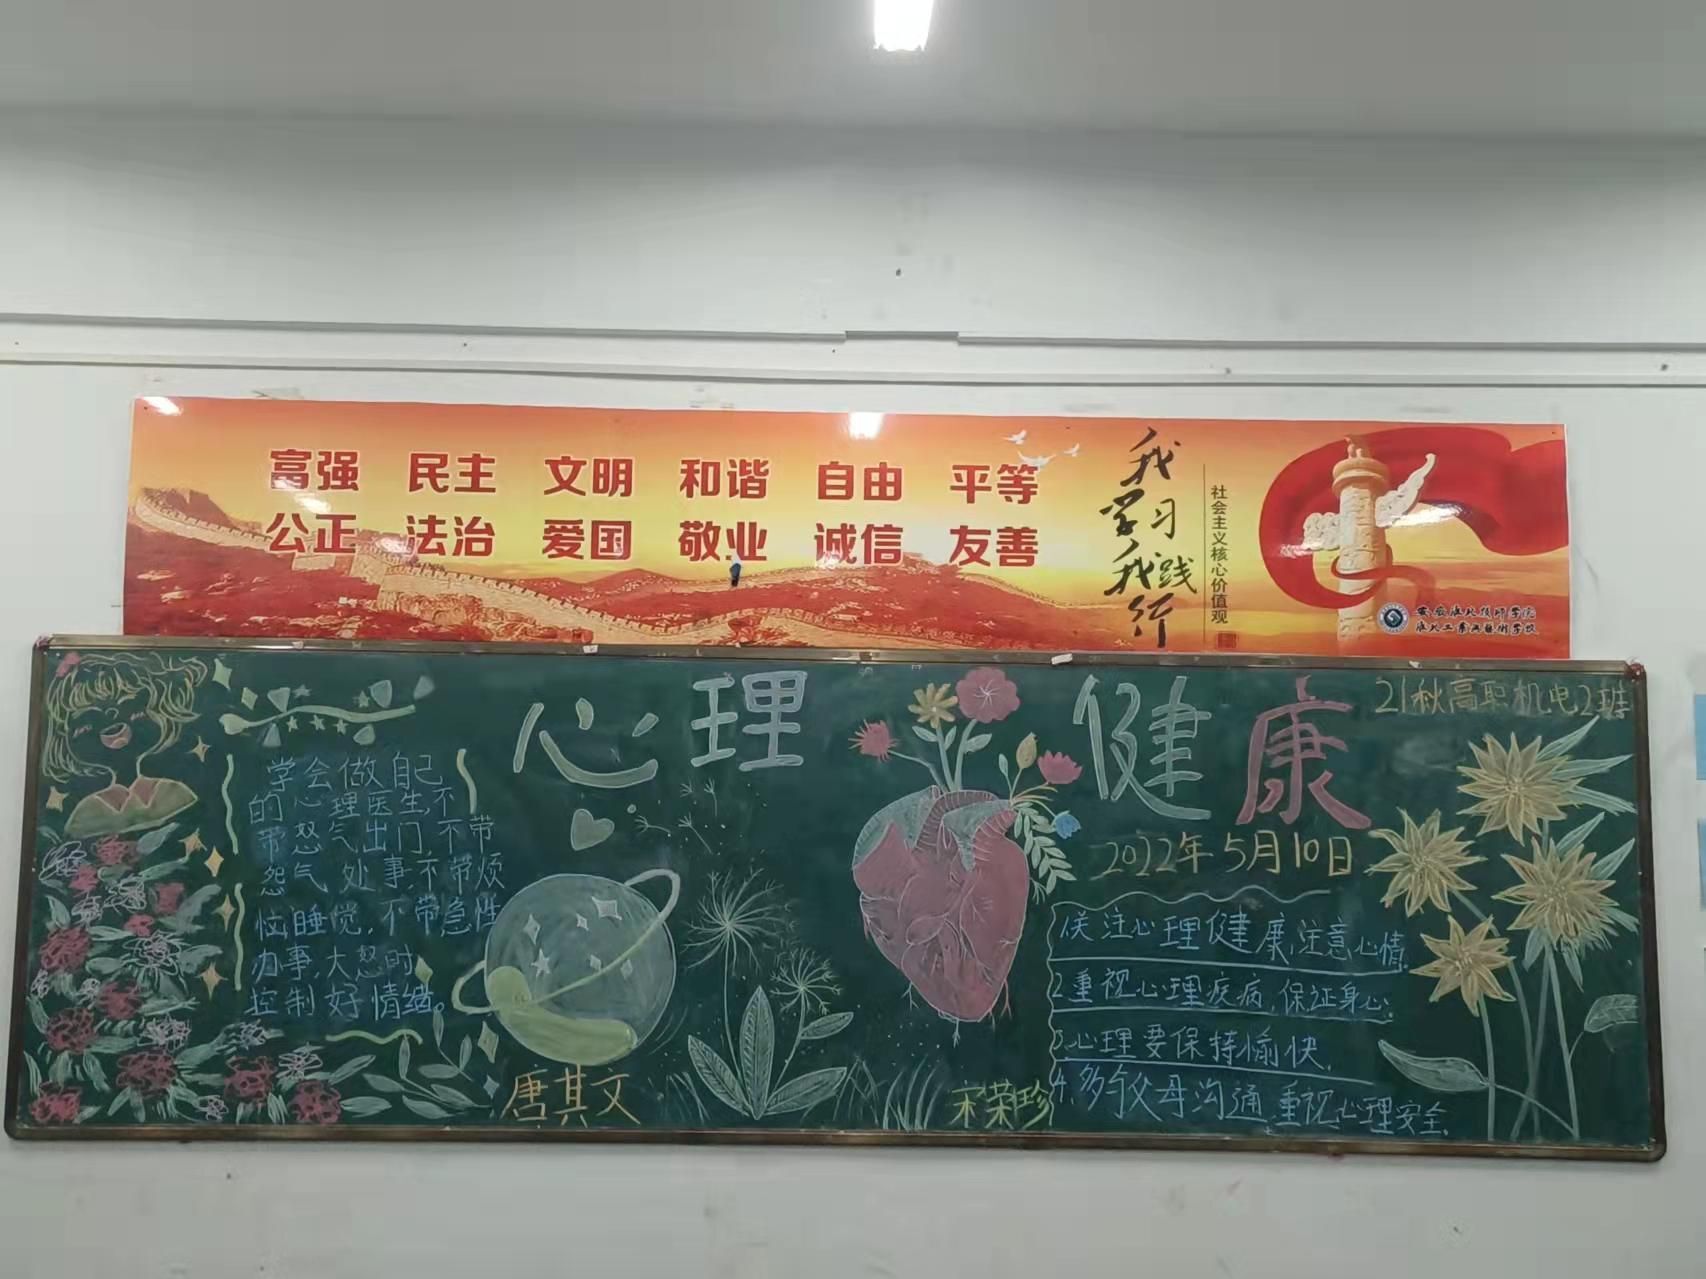 富强 民主 文明 和谐 自由 平等
公正 法治 爱国 敬业 诚信 友善
我
学习
我践
行
社会主义核心价值观
安徽淮北技师学院
淮北工业与艺术学校
心理健康
21秋高职机电2班
2022年5月10日
学会做自己
的心理医生,不
带怒气出门,不带
怨气处事,不带烦
恼睡觉,不带急性
办事,大怒时
控制好情绪。
唐其文
宋荣珍
1关注心理健康,注意心情.
2重视心理疾病,保证身心.
3.心理要保持愉快.
4.多与父母沟通,重视心理安全.